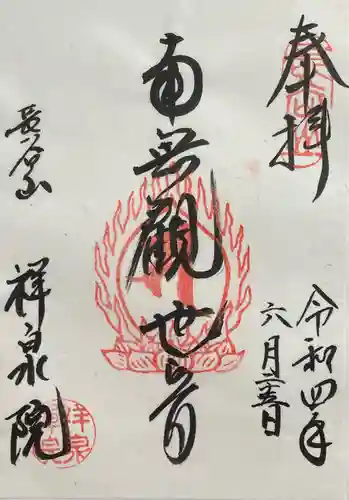 奉拝
令和四年
六月二十五日
南無観世音
長谷山
祥泉院